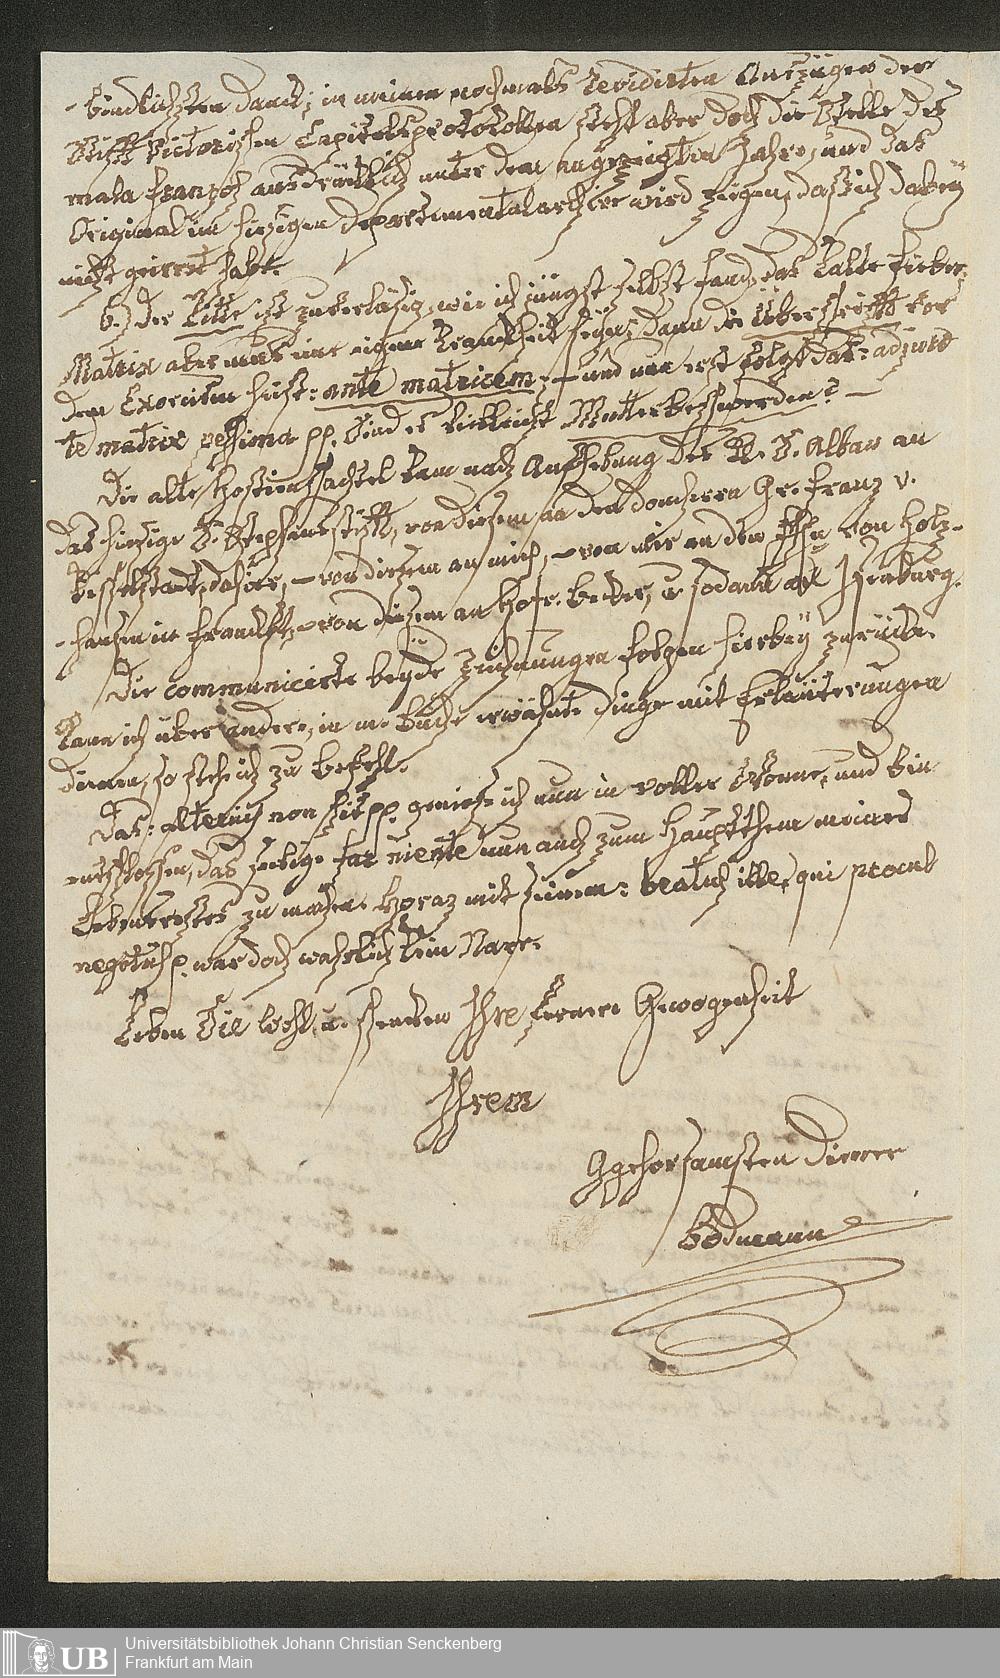 -bindlichsten Danck; in meinen nochmals revidirten Auszügen der
Stifft Victorischen Capitelsprotokollen steht aber doch die Stelle des
mala franzos ausdrücklich unter dem angezeigten Jahre, und das
Original im hiesigen Departementalarchive wird zeigen, daß ich dabey
nicht geirret habe.
6.) Der Ritte ist zuverläsig, wie ich jüngst selbst fand, das kalte Fieber.
Matrix aber muß eine eigene Krankheit seyn; dann die Überschrifft vor
dem Exorcism heist: ante matricem; – und nun erst folgt das: adjuro
te matrix pessima pp. Sind es vielleicht Mutterbeschwerden? –
Die alte Hostienschachtel kam nach Aufhebung des Kl. S. Alban an
das hiesige S. Stephansstifft, von diesem an den Domherrn Gr. Franz v.
Kesselstadt dahier, – von diesem an mich, – von mir an den Hhn von Holz-
-hausen in Franckft, – von diesem an Hofr. Becker, u. sodann an Isenburg.
Die communicirte beyde Zeichnungen folgen hierbey zurücke.
Kann ich über andere, in m. Buche erwähnte Dinge mit Erläuterungen
dienen, so stehe ich zu Befehl.
Das: alterius non sit pp. geniese ich nun in voller Wonne, und bin
entschlossen, das seelige far niente nun auch zum Hauptthema meines
Lebensrestes zu machen. Horaz mit seinem: beatus ille, qui procul
negotiis p. war doch wahrlich kein Narr.
Leben Sie wohl, u. schencken Ihre fernere Gewogenheit
Ihrem
Ggehorsamsten Diener
Bodmann
Universitätsbibliothek Johann Christian Senckenberg
Frankfurt am Main
UB